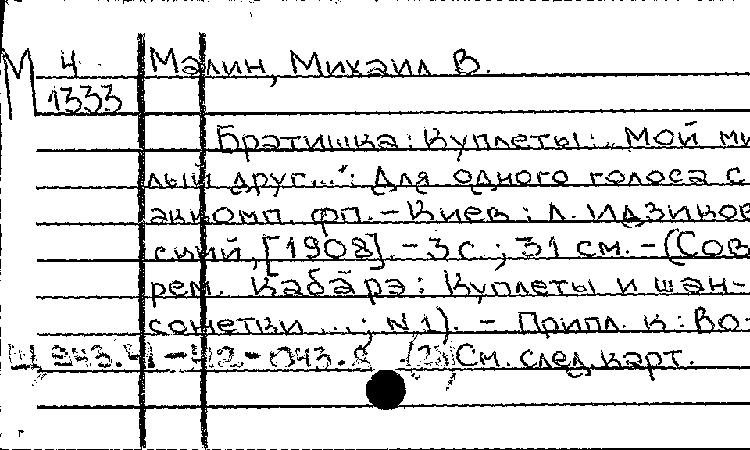 М 4 Малин, Михаил В.
1333
Братишка: Куплеты: „Мой ми
лый друг...": Для одного голоса с
аккомп. фп. - Киев: Л. Идзиков
ский, [1908]. - 3 с.; 31 см. - (Сов
рем. кабарэ: Куплеты и шан-
сонетки ...; N 1). - Припл. к: Во-
См. след. карт.